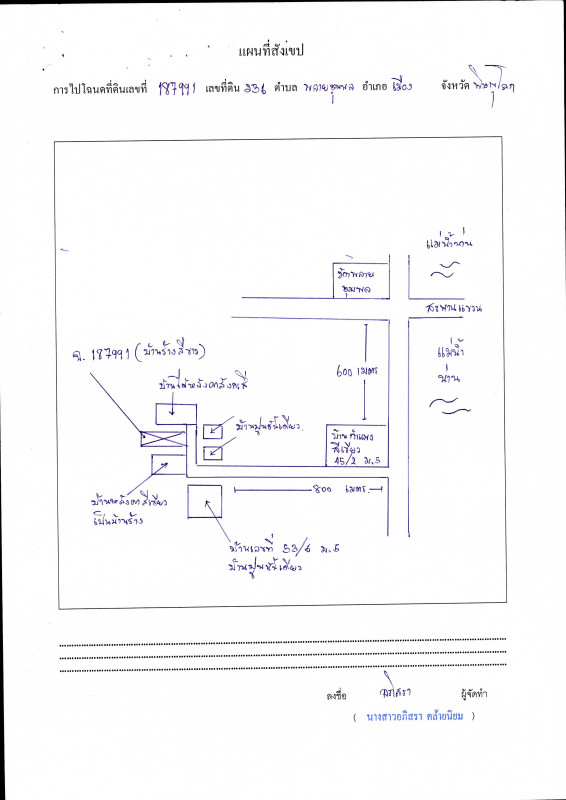 แผนที่สังเขป
การไปโฉนดที่ดินเลขที่ 187991 เลขที่ดิน 336 ตำบล พลายชุมพล อำเภอ เมือง จังหวัด พิษณุโลก
แม่น้ำน่าน
วัดพลาย
ชุมพล
สะพานแขวน
ฉ. 187991 (บ้านร้างสีขาว)
600 เมตร
แม่น้ำ
น่าน
บ้านไม้หลังคาสังกะสี
บ้านปูนชั้นเดียว
บ้านกำแพง
สีเขียว
45/2 ม.5
800 เมตร
บ้านหลังคาสีเขียว
เป็นบ้านร้าง
บ้านเลขที่ 53/6 ม.5
บ้านปูนชั้นเดียว
ลงชื่อ อภิสรา ผู้จัดทำ
( นางสาวอภิสรา คล้ายนิยม )